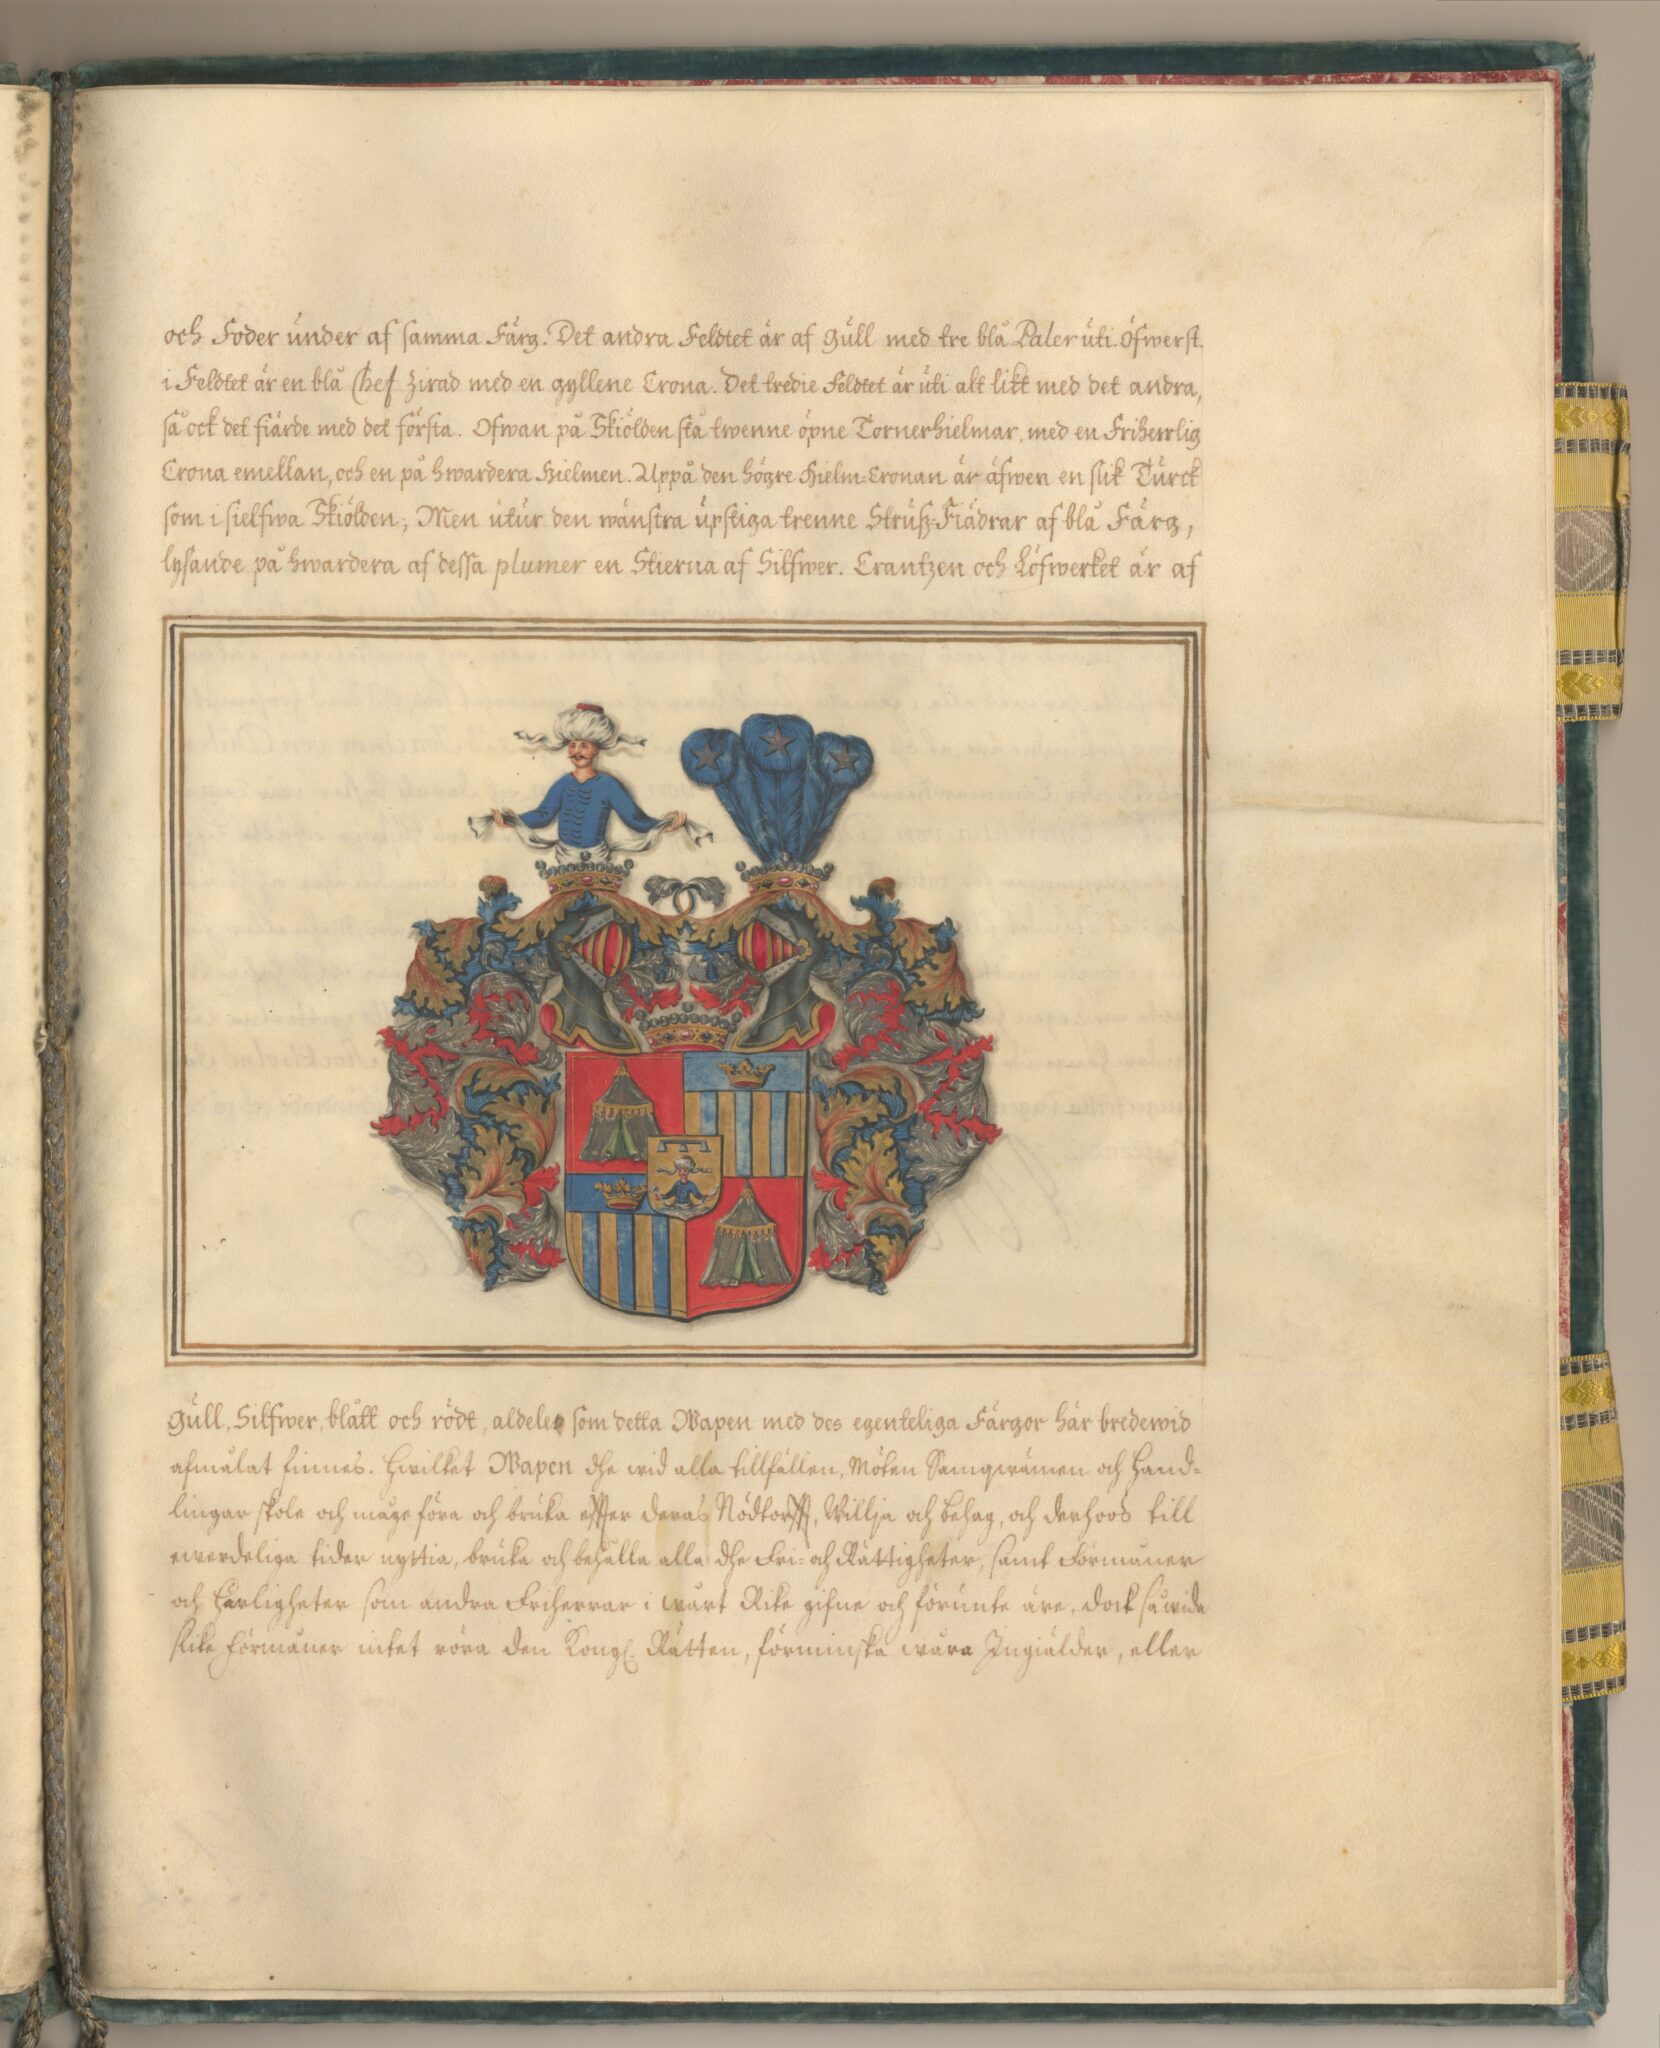 och Foder under af samma Färg. Det andra Feldtet är af gull med tre blå Paler uti. Öfwerst
i Feldtet är en blå Chef zirad med en gyllene Crona. Det tredie Feldtet är uti alt likt med det andra,
så ock det fiärde med det första. Ofwan på Skiölden stå twenne öpne Tornerhielmar, med en Friherrlig
Crona emellan, och en på hwardera Hielmen. Uppå den högre Hielm-Cronan är äfwen en slik Turck
som i sielfwa Skiölden; Men utur den wänstra upstiga trenne Struß-Fiädrar af blå Färg,
lysande på hwardera af dessa plumer en Stierna af Silfwer. Crantzen och Löfwerket är af
gull, Silfwer, blått och rödt, aldeles som detta Wapen med des egenteliga Färgor här bredewid
afmålat finnes. Hwilket Wapen dhe wid alla tillfällen, Möten Samqwämen och Hand-
lingar skole och måge föra och bruka effter deras Nödtorfft, Willja och behag, och derhoos till
ewerdeliga tider nyttia, bruka och behålla alla dhe Fri- och Rättigheter, samt Förmåner
och Härligheter som andra Friherrar i wårt Rike gifne och förunte äre, dock så wida
slike Förmåner intet röra den Kongl. Rätten, förminska wåra Ingiälder, eller